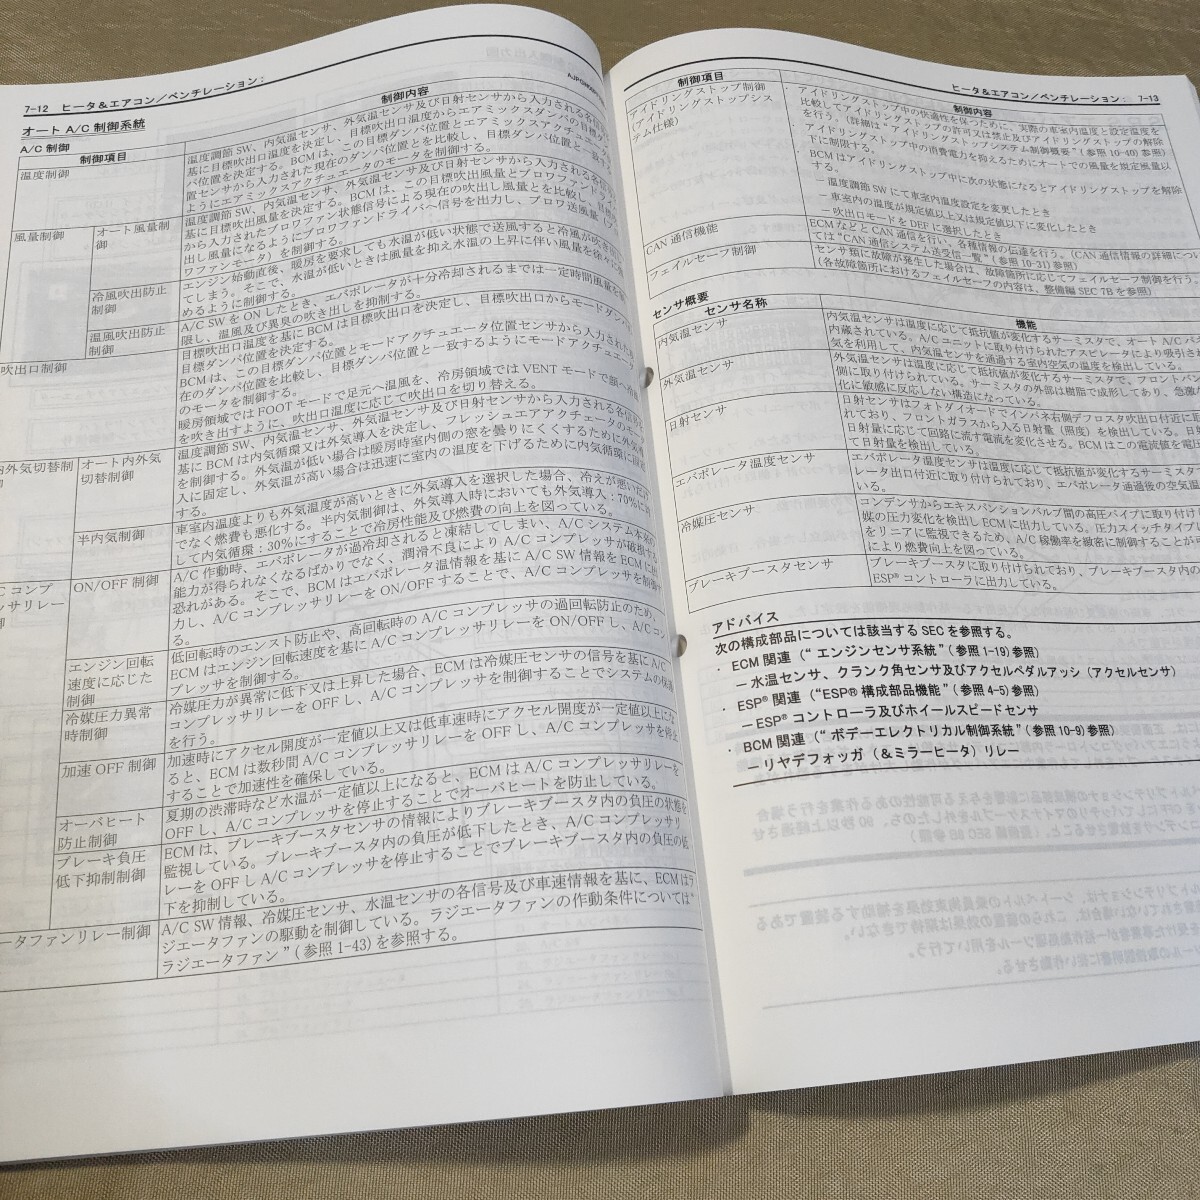 7-12 ヒータ＆エアコン／ベンチレーション：
オート A/C 制御系統
A/C 制御
制御項目
制御内容
温度制御
温度調節 SW、内気温センサ、外気温センサ及び日射センサから入力される各信号を
基に目標吹出口温度を決定し、目標吹出口温度からエアミックスダンパの目標ダン
パ位置を決定する。BCM は、この目標ダンパ位置とエアミックスアクチュエータ位
置センサから入力された現在のダンパ位置とを比較し、目標ダンパ位置と一致する
ようにエアミックスアクチュエータのモータを制御する。
風量制御
オート風量制
御
温度調節 SW、内気温センサ、外気温センサ及び日射センサから入力される各信号を
基に目標吹出風量を決定する。BCM は、この目標吹出風量とブロワファンドライバ
から入力されたブロワファン状態信号による現在の吹出し風量とを比較し、目標吹
出し風量になるようにブロワファンドライバへ信号を出力し、ブロワ送風量（ブロ
ワファンモータ）を制御する。
冷風吹出防止
制御
エンジン始動直後、暖房を要求しても水温が低い状態で送風すると冷風が吹き出し
てしまう。そこで、水温が低いときは風量を抑え水温の上昇に伴い風量を徐々に強
めるように制御する。
温風吹出防止
制御
A/C SW を ON したとき、エバポレータが十分冷却されるまでは一定時間風量を制
限し、温風及び異臭の吹き出しを抑制する。
吹出口制御
目標吹出口温度を基に BCM は目標吹出口を決定し、目標吹出口からモードダンパの
目標ダンパ位置を決定する。
BCM は、この目標ダンパ位置とモードアクチュエータ位置センサから入力された現
在のダンパ位置を比較し、目標ダンパ位置と一致するようにモードアクチュエータ
のモータを制御する。
暖房領域では FOOT モードで足元へ温風を、冷房領域では VENT モードで顔へ冷風
を吹き出すように、吹出口温度に応じて吹出口を切り替える。
内外気切替制
御
オート内外気
切替制御
温度調節 SW、内気温センサ、外気温センサ及び日射センサから入力される各信号を
基に BCM は内気循環又は外気導入を決定し、フレッシュエアアクチュエータのモータ
を制御する。外気温が低い場合は暖房時室内側の窓を曇りにくくするために外気導
入に固定し、外気温が高い場合は迅速に室内の温度を下げるために内気循環に固定
する。
半内気制御
車室内温度よりも外気温度が高いときに外気導入を選択した場合、冷えが悪いだけ
でなく燃費も悪化する。半内気制御は、外気導入時においても外気導入：70%に対
して内気循環：30%にすることで冷房性能及び燃費の向上を図っている。
ON/OFF 制御
A/C 作動時、エバポレータが過冷却されると凍結してしまい、A/C システム本来の
能力が得られなくなるばかりでなく、潤滑不良により A/C コンプレッサが破損する
恐れがある。そこで、BCM はエバポレータ温情報を基に A/C SW 情報を ECM に出
力し、A/C コンプレッサリレーを ON/OFF することで、A/C コンプレッサを制御す
る。
エンジン回転
速度に応じた
制御
低回転時のエンスト防止や、高回転時の A/C コンプレッサの過回転防止のため、
ECM はエンジン回転速度を基に A/C コンプレッサリレーを ON/OFF し、A/C コン
プレッサを制御する。
冷媒圧力異常
時制御
冷媒圧力が異常に低下又は上昇した場合、ECM は冷媒圧センサの信号を基に A/C
コンプレッサリレーを OFF し、A/C コンプレッサを制御することでシステムの保護
を行う。
加速 OFF 制御
加速時にアクセル開度が一定値以上又は低車速時にアクセル開度が一定値以上にな
ると、ECM は数秒間 A/C コンプレッサリレーを OFF し、A/C コンプレッサを停止
することで加速性を確保している。
オーバヒート
防止制御
夏期の渋滞時など水温が一定値以上になると、ECM は A/C コンプレッサリレーを
OFF し、A/C コンプレッサを停止することでオーバヒートを防止している。
ブレーキ負圧
低下抑制制御
ECM は、ブレーキブースタセンサの情報によりブレーキブースタ内の負圧の状態を
監視している。ブレーキブースタ内の負圧が低下したとき、A/C コンプレッサリ
レーを OFF し A/C コンプレッサを停止することでブレーキブースタ内の負圧の低
下を抑制している。
ータファンリレー制御
A/C SW 情報、冷媒圧センサ、水温センサの各信号及び車速情報を基に、ECM はラ
ジエータファンの駆動を制御している。ラジエータファンの作動条件については"
ラジエータファン "（参照 1-43）を参照する。
ヒータ＆エアコン／ベンチレーション： 7-13
制御項目
制御内容
アイドリングストップ制御
（アイドリングストップシス
テム仕様）
・ アイドリングストップ中の快適性を保つために、実際の車室内温度と設定温度を
比較してアイドリングストップの許可又は禁止及びアイドリングストップの解除
を行う。（詳細は " アイドリングストップシステム制御概要 "（参照 10-40）参照）
・ アイドリングストップ中の消費電力を抑えるためにオートでの風量を規定風量以
下に制限する。
・ BCM はアイドリングストップ中に次の状態になるとアイドリングストップを解除
する。
– 温度調節 SW にて車室内温度設定を変更したとき
– 車室内の温度が規定値以上又は規定値以下に変化したとき
– 吹出口モードを DEF に選択したとき
CAN 通信機能
ECM などと CAN 通信を行い、各種情報の伝達を行う。（CAN 通信情報の詳細につい
ては "CAN 通信システム送受信一覧 "（参照 10-31）参照）
フェイルセーフ制御
センサ類に故障が発生した場合は、故障箇所に応じてフェイルセーフ制御を行う。
（各故障箇所におけるフェイルセーフの内容は、整備編 SEC 7B を参照）
センサ概要
センサ名称
機能
内気温センサ
内気温センサは温度に応じて抵抗値が変化するサーミスタで、オート A/C パネ
内蔵されている。A/C ユニットに取り付けられたアスピレータにより吸引され
気を利用して、内気温センサを通過する室内空気の温度を検出している。
外気温センサ
外気温センサは温度に応じて抵抗値が変化するサーミスタで、フロントバン
側に取り付けられている。サーミスタの外部は樹脂で成形してあり、急激な
化に敏感に反応しない構造になっている。
日射センサ
日射センサはフォトダイオードでインパネ右側デフロスタ吹出口付近に取
れており、フロントガラスから入る日射量（照度）を検出している。日射
日射量に応じて回路に流す電流を変化させる。BCM はこの電流値を電圧
て日射量を検出している。
エバポレータ温度センサ
エバポレータ温度センサは温度に応じて抵抗値が変化するサーミスタ
レータ出口付近に取り付けられており、エバポレータ通過後の空気温
いる。
冷媒圧センサ
コンデンサからエキスパンションバルブ間の高圧パイプに取り付け
媒の圧力変化を検出し ECM に出力している。圧力スイッチタイプ
をリニアに監視できるため、A/C 稼働率を緻密に制御することが可
により燃費向上を図っている。
ブレーキブースタセンサ
ブレーキブースタに取り付けられており、ブレーキブースタ内の
ESP® コントローラに出力している。
アドバイス
次の構成部品については該当する SEC を参照する。
・ ECM 関連（" エンジンセンサ系統 "（参照 1-19）参照）
– 水温センサ、クランク角センサ及びアクセルペダルアッシ（アクセルセンサ）
・ ESP® 関連（"ESP® 構成部品機能 "（参照 4-5）参照）
– ESP® コントローラ及びホイールスピードセンサ
・ BCM 関連（" ボデーエレクトリカル制御系統 "（参照 10-9）参照）
– リヤデフォッガ（＆ミラーヒータ）リレー